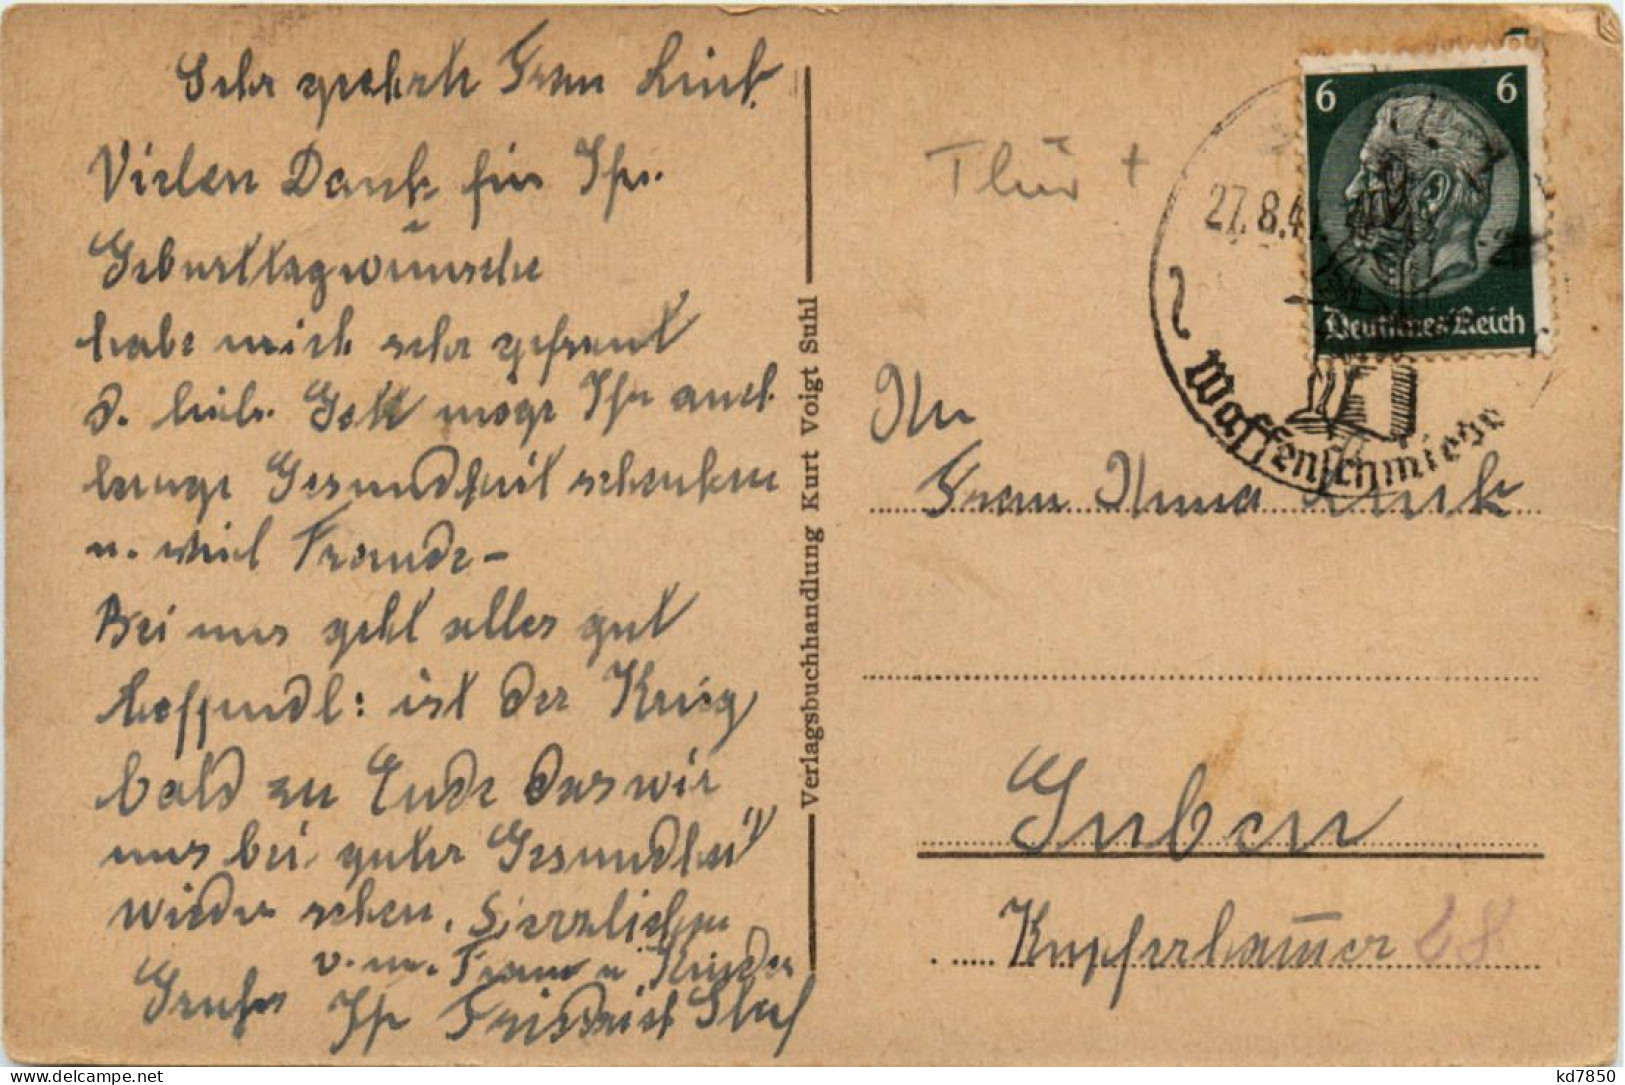 Sehr geehrte Frau Linck.
Vielen Dank für Ihre
Geburttagwünsche
habe mich sehr gefreut
d. liebe Gott möge Ihn auch
lange Gesundheit schenken
u. viel Freude –
Bei uns geht alles gut
hoffendl: ist der Krieg
bald zu Ende das wir
uns bei guter Gesundheit
wieder sehen. Herzlichen
Gruß v. m. Frau u Kinder
Ihr Friedrich
Verlagsbuchhandlung Kurt Voigt Suhl
Thür +
6 6
Deutsches Reich
27.8.4
Waffenschmiede
An
Frau Anna Linck
Guben
Kupferhammer 68
kd7850